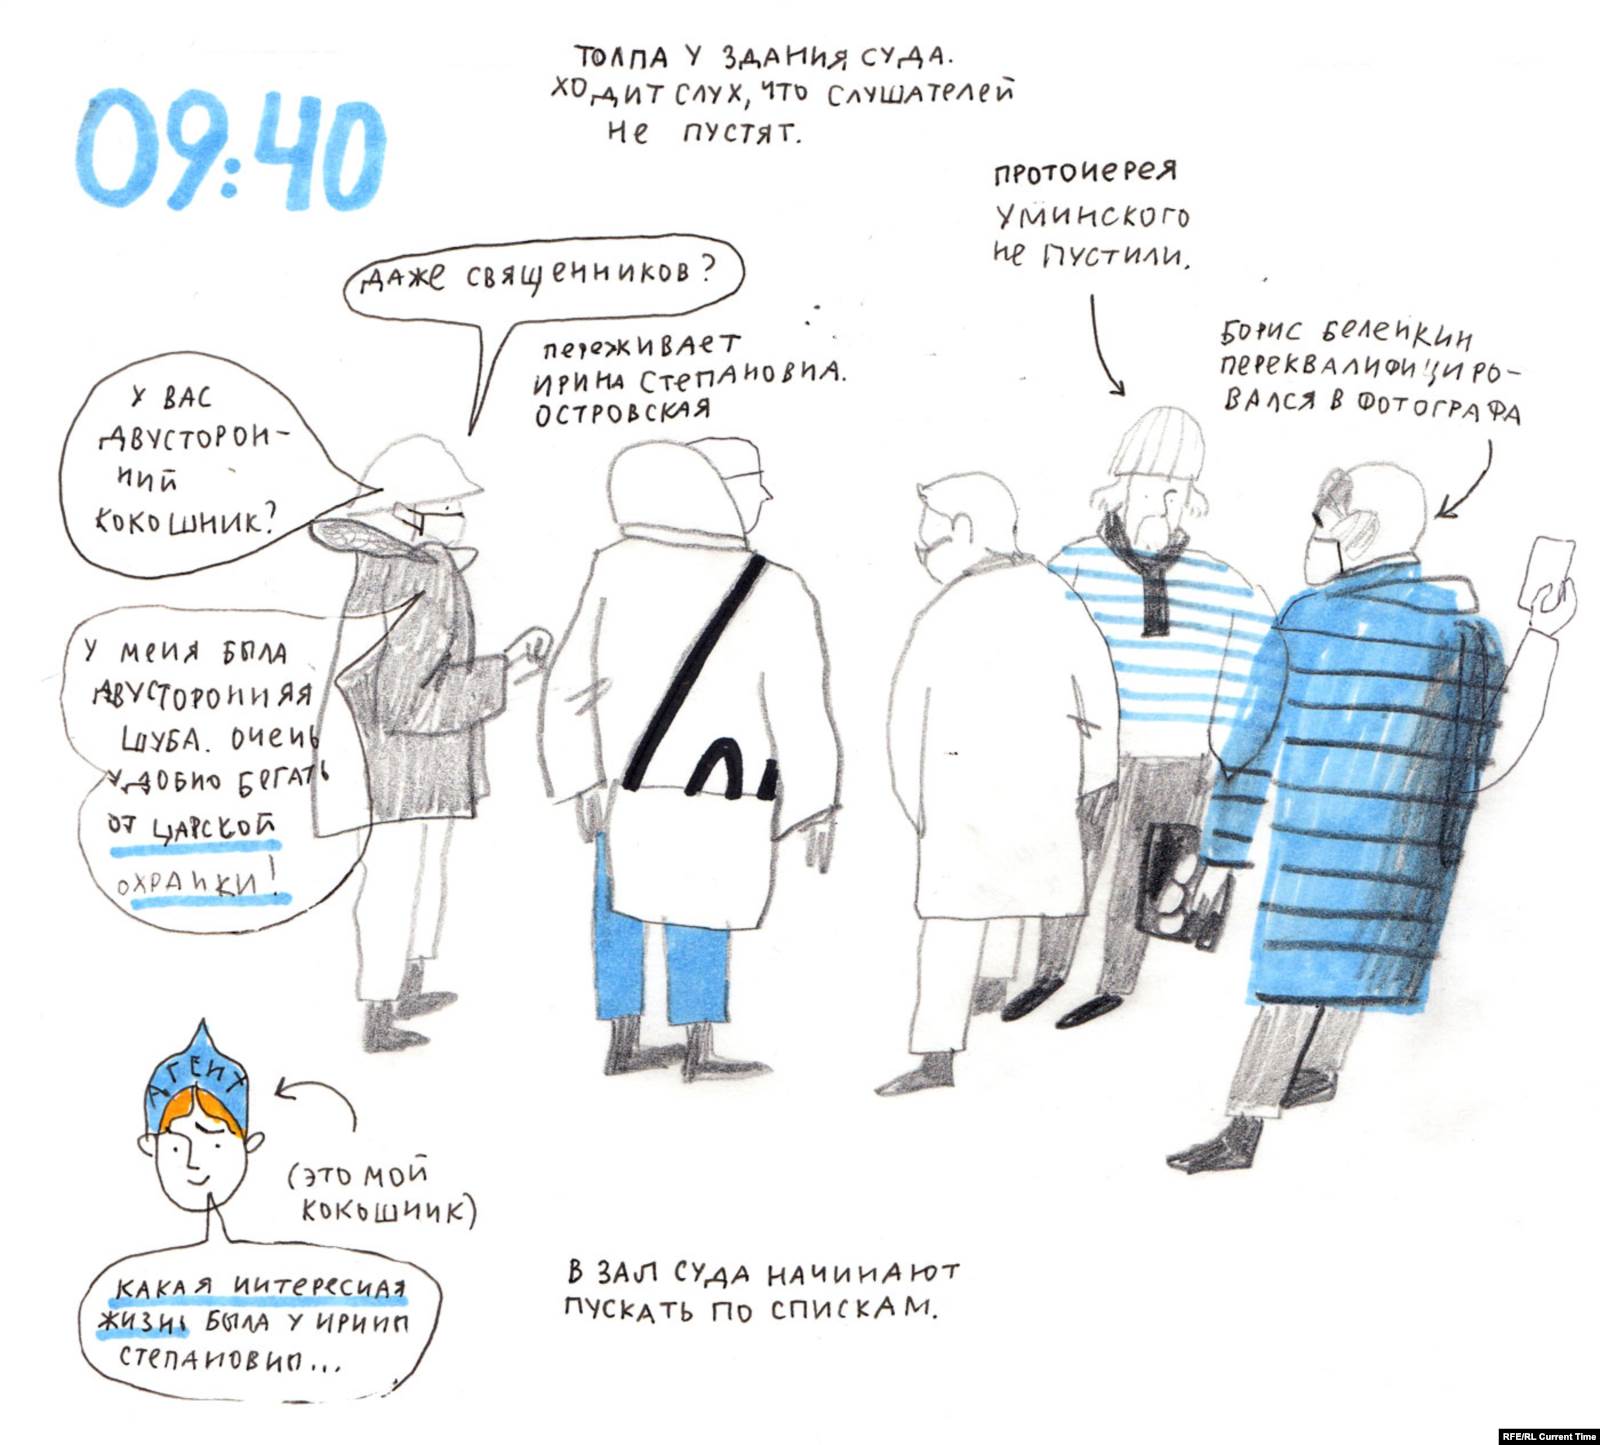 09:40
ТОЛПА У ЗДАНИЯ СУДА.
ХОДИТ СЛУХ, ЧТО СЛУШАТЕЛЕЙ
НЕ ПУСТЯТ.
ПРОТОИЕРЕЯ
УМИНСКОГО
НЕ ПУСТИЛИ.
ДАЖЕ СВЯЩЕННИКОВ?
ПЕРЕЖИВАЕТ
ИРИНА СТЕПАНОВНА.
ОСТРОВСКАЯ
БОРИС БЕЛЕНКИН
ПЕРЕКВАЛИФИЦИРО-
ВАЛСЯ В ФОТОГРАФА
У ВАС
ДВУСТОРОН-
НИЙ
КОКОШНИК?
У МЕНЯ БЫЛА
ДВУСТОРОННЯЯ
ШУБА. ОЧЕНЬ
УДОБНО БЕГАТЬ
ОТ ЦАРСКОЙ
ОХРАНКИ!
АГЕНТ
(ЭТО МОЙ
КОКОШНИК)
КАКАЯ ИНТЕРЕСНАЯ
ЖИЗНЬ БЫЛА У ИРИНЫ
СТЕПАНОВНЫ...
В ЗАЛ СУДА НАЧИНАЮТ
ПУСКАТЬ ПО СПИСКАМ.
RFE/RL Current Time